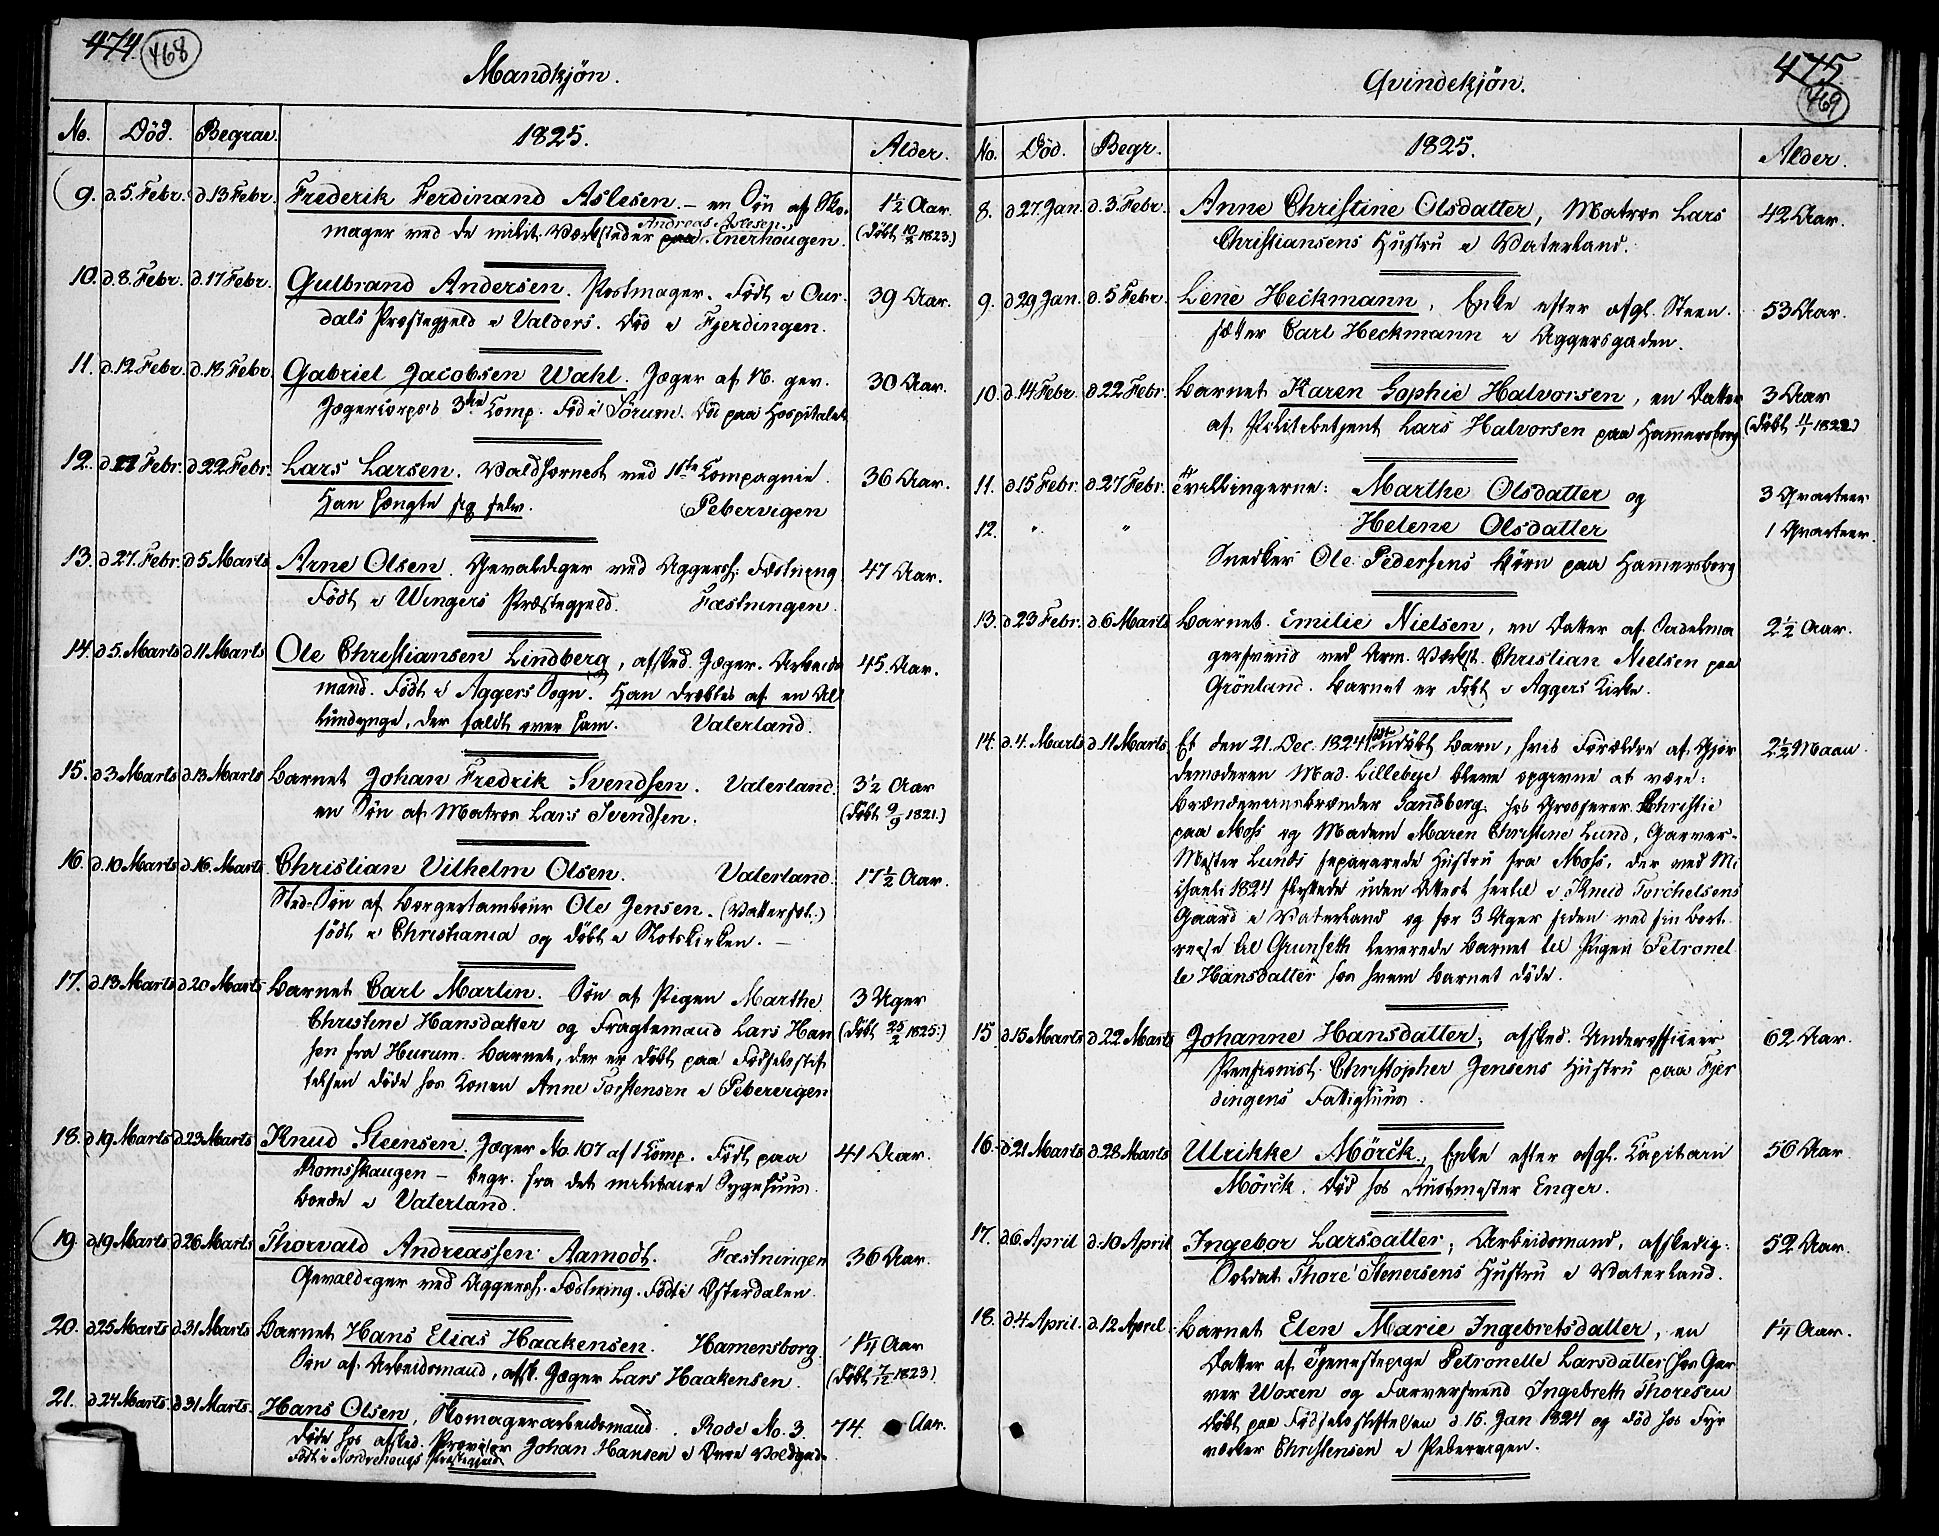 474. 468
Mandkjön.
No. Död. Begrav. 1825. Alder.
9. d. 5. Febr. d 13 Febr. Frederik Ferdinand Aslesen. – en Sön af Sko- 1½ Aar.
mager ved de milit. Værksteder paa Andreas Aslesen. Enerhougen. (døbt 10/8 1823.)
10. d. 8. Febr. d. 17 Febr. Gulbrand Andersen. Født i Our- 39 Aar.
dals Præstegjeld i Valders. Død i Fjerdingen.
11. d. 12 Febr. d. 18 Febr. Gabriel Jacobsen Wahl. Jæger af N. gev. 30 Aar.
Jægercorps's 3die Comp. Föd i Sørum. Død paa Hospitalet
12. d 17 Febr. d 22 Febr. Lars Larsen. Valdhornest ved 1ste Compagnie. 36 Aar.
Han hængte sig selv. Pebervigen
13. d 27. Febr. d 5 Marts Arne Olsen. Gevaldiger ved Aggersh. Fæstning 47 Aar.
Født i Wingers Præstegjeld. Fæstningen.
14. d 5. Marts d 11 Marts Ole Christiansen Lindberg, afsked. Jæger. Arbeids 45 Aar.
mand. Født i Aggers Sogn. Han dræbtes af en Al
lundynge, der faldt over ham. Vaterland.
15. d 3 Marts d. 13 Marts Barnet Johan Fredrik Svendsen. Vaterland 3½ Aar
en Sön af Matros Lars Svendsen. (døbt 9/9 1821.)
16. d. 10 Marts d. 16. Marts Christian Vilhelm Olsen. Vaterland. 17½ Aar.
Sted-Sön af Borgertambour Ole Jensen.
født i Christiania og døbt i Slotskirken. –
17. d. 13 Marts d 20 Marts Barnet Carl Martin. Sön af Pigen Marthe 3 Uger
Christine Hansdatter og Fragtemand Lars Han (døbt 25/2 1825.)
sen fra Hurum. Barnet, der er døbt paa Fødselsstif
telsen døde hos Konen Anne Torstensen i Pebervigen
18. d 19 Marts d 23 Marts Knud Steensen. Jæger No. 107 af 1 Comp. Födt paa 41 Aar.
Romsskaugen – begr. fra det militaire Sygehuus.
boede i Vaterland.
19 d 19 Marts d 26 Marts Thorvald Andreassen Aamodt. Fæstningen 36 Aar.
Gevaldiger ved Aggersh. Fæstning. Födt i Østerdalen.
20. d 25 Marts d. 31 Marts Barnet Hans Elias Haakensen. Hamersborg. 1¼ Aar
Sön af Arbeidsmand, afsk. Jæger Lars Haakensen. (døbt 7/12 1823)
21. d 24 Marts. d. 31 Marts. Hans Olsen, Skomagerarbeidsmand. Rode No. 3. 74. Aar.
døde hos afsked. Provisor Johan Hansen i Övre Voldgade
Födt i Nordrehougs Præstegjeld
475. 469
Qvindekjön.
No. Död. Begr. 1825. Alder.
8. d 27. Jan. d. 3. Febr. Anne Christine Olsdatter, Matros Lars 42 Aar.
Christiansens Hustru i Vaterland.
9. d 29 Jan. d. 5 Febr. Lene Heckmann, Enke efter afgl. Steen- 53 Aar.
sætter Carl Heckmann i Aggersgaden.
10. d. 14 Febr. d 22 Febr. Barnet Karen Sophie Halvorsen, en Datter 3 Aar
af Politibetjent Lars Halvorsen paa Hamersborg (døbt 11/1 1822)
11. d 15 Febr. d. 27 Febr. Tvillingerne: Marthe Olsdatter og 3 Qvarteer
12. " " Helene Olsdatter 1 Qvarteer.
Snedker Ole Pedersens Börn paa Hamersborg
13. d 23 Febr. d. 6 Marts Barnet Emilie Nielsen, en Datter af Sadelma 2½ Aar.
gersvend ved Arm. Værkst. Christian Nielsen paa
Grönland. Barnet er døbt i Aggers Kirke.
14. d. 4. Marts d. 11 Marts Et den 21. Dec. 1824 født udøbt Barn, hvis Forældre af Gjor 2½ Maan.
demoderen Mad. Lillebye bleve opgivne at være:
Brændeviinsbrænder Sandberg hos Grosserer Christie
paa Moss og Madam Maren Christine Lund, Garver-
Mester Lunds separerede Hustru fra Moss, der ved Mi
chaeli 1824 flyttede uden Attest hertil i Knud Torchelsens
Gaard i Vaterland og for 3 Uger siden ved sin Bort-
reise til Grunseth leverede Barnet til Pigen Petronel
le Hansdatter hos hvem Barnet døde.
15 d 15 Marts d. 22 Marts Johanne Hansdatter, afsked. Underofficeer 62 Aar.
Pensionist Christopher Jensens Hustru paa Fjer
dingens Fattighuus.
16. d 21 Marts d. 28 Marts Ulrikke Mörck, Enke efter afgl. Capitain 56 Aar
Mörck. Död hos Enger.
17. d 6 April d. 10 April Ingebor Larsdatter, Arbeidsmand, afskedig. 52 Aar.
Soldat Thore Stenersens Hustru i Vaterland.
18. d. 4 April. d. 12 April. Barnet Elen Marie Ingebretsdatter, en 1¼ Aar.
Datter af Tjenestepige Petronelle Larsdatter (hos Gar
ver Woxen og Farversvend Ingebreth Thoresen
døbt paa Fødselsstiftelsen d 15. Jan 1824 og død hos Fyr
værker Christensen i Pebervigen.